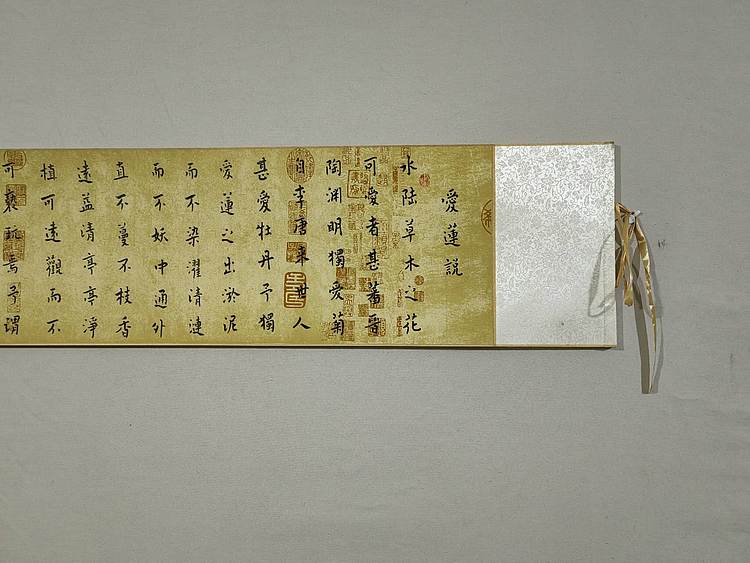 愛蓮說
水陸草木之花
可愛者甚蕃晉
陶淵明獨愛菊
自李唐来世人
甚愛牡丹予獨
愛蓮之出淤泥
而不染濯清漣
而不妖中通外
直不蔓不枝香
遠益清亭亭淨
植可遠觀而不
可褻玩焉予謂